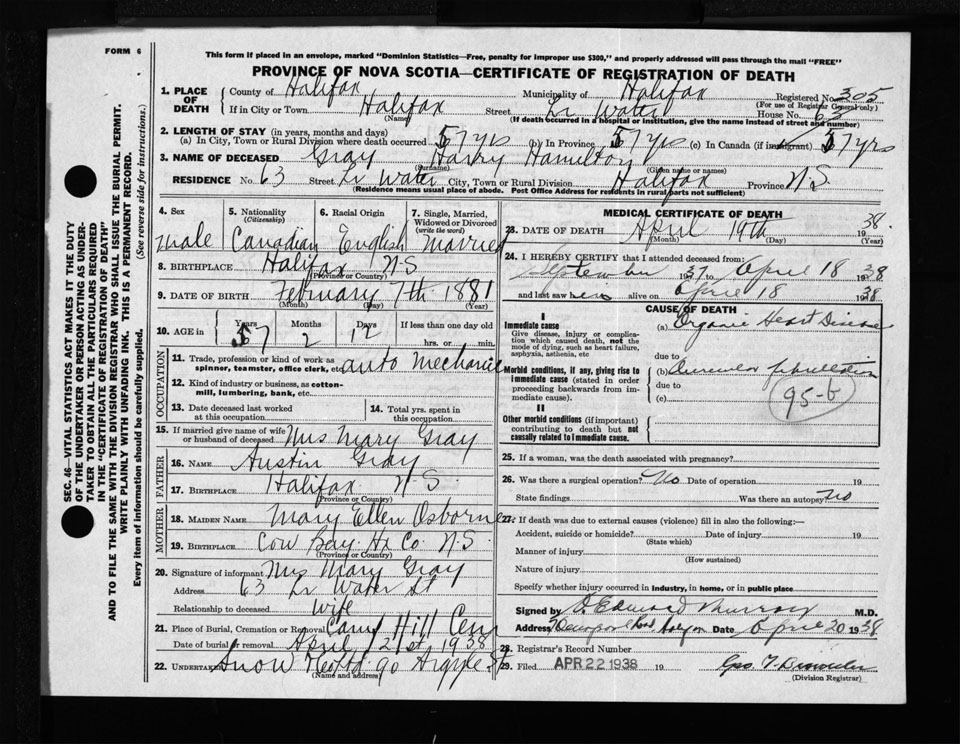 FORM 6
This form if placed in an envelope, marked "Dominion Statistics—Free, penalty for improper use $300," and properly addressed will pass through the mail "FREE"
PROVINCE OF NOVA SCOTIA—CERTIFICATE OF REGISTRATION OF DEATH
1. PLACE OF DEATH
County of Halifax Municipality of Halifax Registered No. 305
(For use of Registrar General only)
If in City or Town Halifax Street Lr Water House No. 63
(Name) (If death occurred in a hospital or institution, give the name instead of street and number)
2. LENGTH OF STAY (in years, months and days)
(a) In City, Town or Rural Division where death occurred 57 yrs (b) In Province 57 yrs (c) In Canada (if immigrant) 57 yrs
3. NAME OF DECEASED Gray Harry Hamilton
(Surname) (Given name or names)
RESIDENCE No. 63 Street Lr Water City, Town or Rural Division Halifax Province N S
(Residence means usual place of abode. Post Office Address for residents in rural parts not sufficient)
SEC. 46—VITAL STATISTICS ACT MAKES IT THE DUTY
OF THE UNDERTAKER OR PERSON ACTING AS UNDER-
TAKER TO OBTAIN ALL THE PARTICULARS REQUIRED
IN THE "CERTIFICATE OF REGISTRATION OF DEATH"
AND TO FILE THE SAME WITH THE DIVISION REGISTRAR WHO SHALL ISSUE THE BURIAL PERMIT.
WRITE PLAINLY WITH UNFADING INK. THIS IS A PERMANENT RECORD.
Every item of information should be carefully supplied. (See reverse side for instructions.)
4. Sex 5. Nationality (Citizenship) 6. Racial Origin 7. Single, Married, Widowed or Divorced (write the word)
male Canadian English Married
8. BIRTHPLACE Halifax NS
(Province or Country)
9. DATE OF BIRTH February 7th 1881
(Month) (Day) (Year)
10. AGE in Years Months Days If less than one day old
57 2 12 hrs. or min.
OCCUPATION
11. Trade, profession or kind of work as spinner, teamster, office clerk, etc. auto mechanic
12. Kind of industry or business, as cotton-mill, lumbering, bank, etc.
13. Date deceased last worked at this occupation
14. Total yrs. spent in this occupation
15. If married give name of wife or husband of deceased Mrs Mary Gray
FATHER
16. NAME Austin Gray
17. BIRTHPLACE Halifax N S
(Province or Country)
MOTHER
18. MAIDEN NAME Mary Ellen Osborne
19. BIRTHPLACE Cow Bay Hx Co. N.S.
(Province or Country)
20. Signature of informant Mrs Mary Gray
Address 63 Lr Water St
Relationship to deceased Wife
21. Place of Burial, Cremation or Removal Camp Hill Cem
Date of burial or removal April 21st 1938
22. UNDERTAKER Snow 90 Argyle St
(Name and address)
MEDICAL CERTIFICATE OF DEATH
23. DATE OF DEATH April 19th 1938
(Month) (Day) (Year)
24. I HEREBY CERTIFY that I attended deceased from:
September 1937 to April 18 1938
and last saw him alive on April 18 1938
CAUSE OF DEATH
I
Immediate cause
Give disease, injury or complication which caused death, not the mode of dying, such as heart failure, asphyxia, asthenia, etc
(a) Organic Heart Disease
due to
Morbid conditions, if any, giving rise to immediate cause (stated in order proceeding backwards from immediate cause).
(b) Auricular fibrillation
due to
(c)
95-b
II
Other morbid conditions (if important) contributing to death but not causally related to immediate cause.
25. If a woman, was the death associated with pregnancy?
26. Was there a surgical operation? No Date of operation 19
State findings Was there an autopsy? No
27. If death was due to external causes (violence) fill in also the following:—
Accident, suicide or homicide? Date of injury 19
(State which)
Manner of injury
(How sustained)
Nature of injury
Specify whether injury occurred in industry, in home, or in public place
Signed by Edward Murray M.D.
Address Date April 20 1938
28. Registrar's Record Number
29. Filed APR 22 1938 19
(Division Registrar)